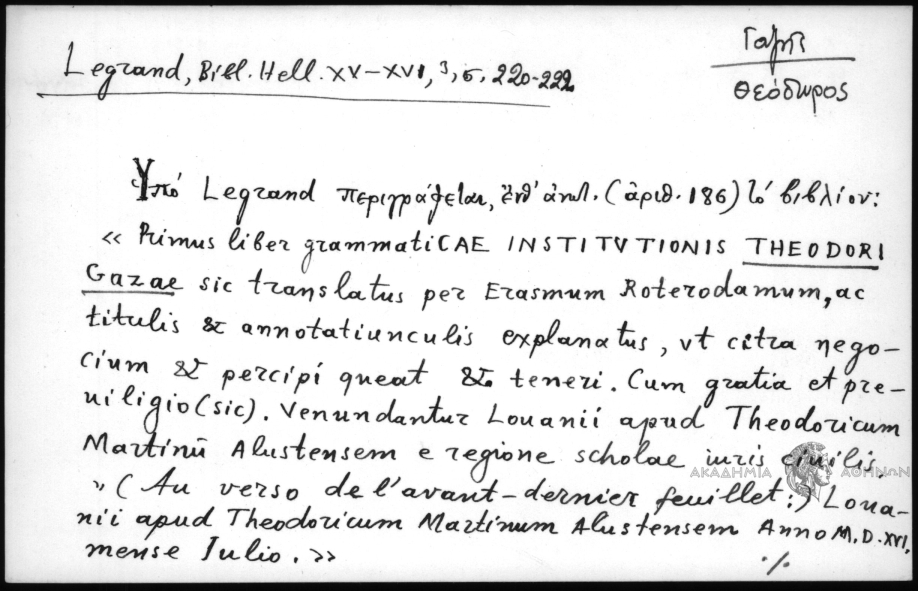 Γαζῆς
Θεόδωρος
Legrand, Bibl. Hell. XV–XVI, 3, σ. 220-222
Ὑπό Legrand περιγράφεται, ἐπ' ἀνατ. (ἀριθ. 186) τό βιβλίον:
« Primus liber grammatiCAE INSTITVTIONIS THEODORI
Gazae sic translatus per Erasmum Roterodamum, ac
titulis & annotatiunculis explanatus, vt citra nego-
cium & percipi queat & teneri. Cum gratia et pre-
uiligio (sic). Venundantur Louanii apud Theodoricum
Martinū Alustensem e regione scholae iuris ciuilis
» (Au verso de l'avant-dernier feuillet:) Loua-
nii apud Theodoricum Martinum Alustensem Anno M.D.XVI,
mense Iulio. »
./.
ΑΚΑΔΗΜΙΑ ΑΘΗΝΩΝ